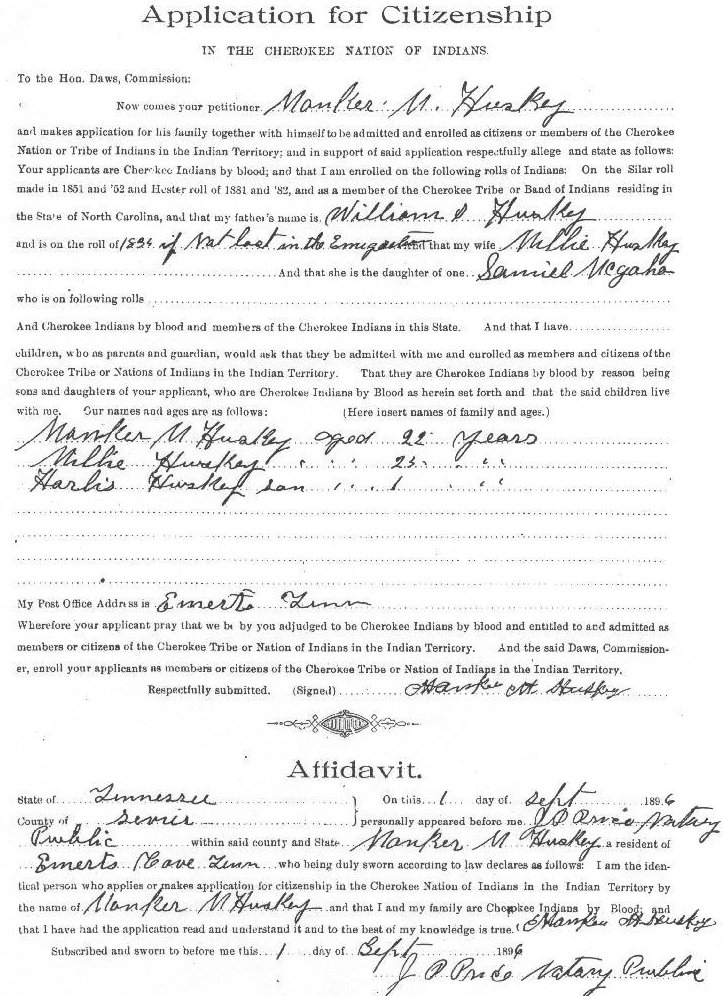 Application for Citizenship
IN THE CHEROKEE NATION OF INDIANS.
To the Hon. Daws, Commission:
Now comes your petitioner Manker M. Huskey
and makes application for his family together with himself to be admitted and enrolled as citizens or members of the Cherokee
Nation or Tribe of Indians in the Indian Territory; and in support of said application respectfully allege and state as follows:
Your applicants are Cherokee Indians by blood; and that I am enrolled on the following rolls of Indians: On the Silar roll
made in 1851 and '52 and Hester roll of 1881 and '82, and as a member of the Cherokee Tribe or Band of Indians residing in
the State of North Carolina, and that my father's name is William Huskey
and is on the roll of 1835 if Not lost in the Emigration and that my wife Millie Huskey
And that she is the daughter of one Samiel Mcgaha
who is on following rolls
And Cherokee Indians by blood and members of the Cherokee Indians in this State. And that I have
children, who as parents and guardian, would ask that they be admitted with me and enrolled as members and citizens of the
Cherokee Tribe or Nations of Indians in the Indian Territory. That they are Cherokee Indians by blood by reason being
sons and daughters of your applicant, who are Cherokee Indians by Blood as herein set forth and that the said children live
with me. Our names and ages are as follows: (Here insert names of family and ages.)
Manker M Huskey aged 22 years
Millie Huskey " " 23 " "
Harlis Huskey son " " 1 " "
My Post Office Address is Emerts Tenn
Wherefore your applicant pray that we be by you adjudged to be Cherokee Indians by blood and entitled to and admitted as
members or citizens of the Cherokee Tribe or Nation of Indians in the Indian Territory. And the said Daws, Commission-
er, enroll your applicants as members or citizens of the Cherokee Tribe or Nation of Indians in the Indian Territory.
Respectfully submitted. (Signed) Manker M Huskey
Affidavit.
State of Tennessee } On this 1 day of Sept 1896
County of Sevier } personally appeared before me J P Price Notary
Public within said county and State Manker M Huskey a resident of
Emerts Cove Tenn who being duly sworn according to law declares as follows: I am the iden-
tical person who applies or makes application for citizenship in the Cherokee Nation of Indians in the Indian Territory by
the name of Manker M Huskey and that I and my family are Cherokee Indians by Blood; and
that I have had the application read and understand it and to the best of my knowledge is true. Manker M Huskey
Subscribed and sworn to before me this 1 day of Sept 1896
J P Price Notary Public